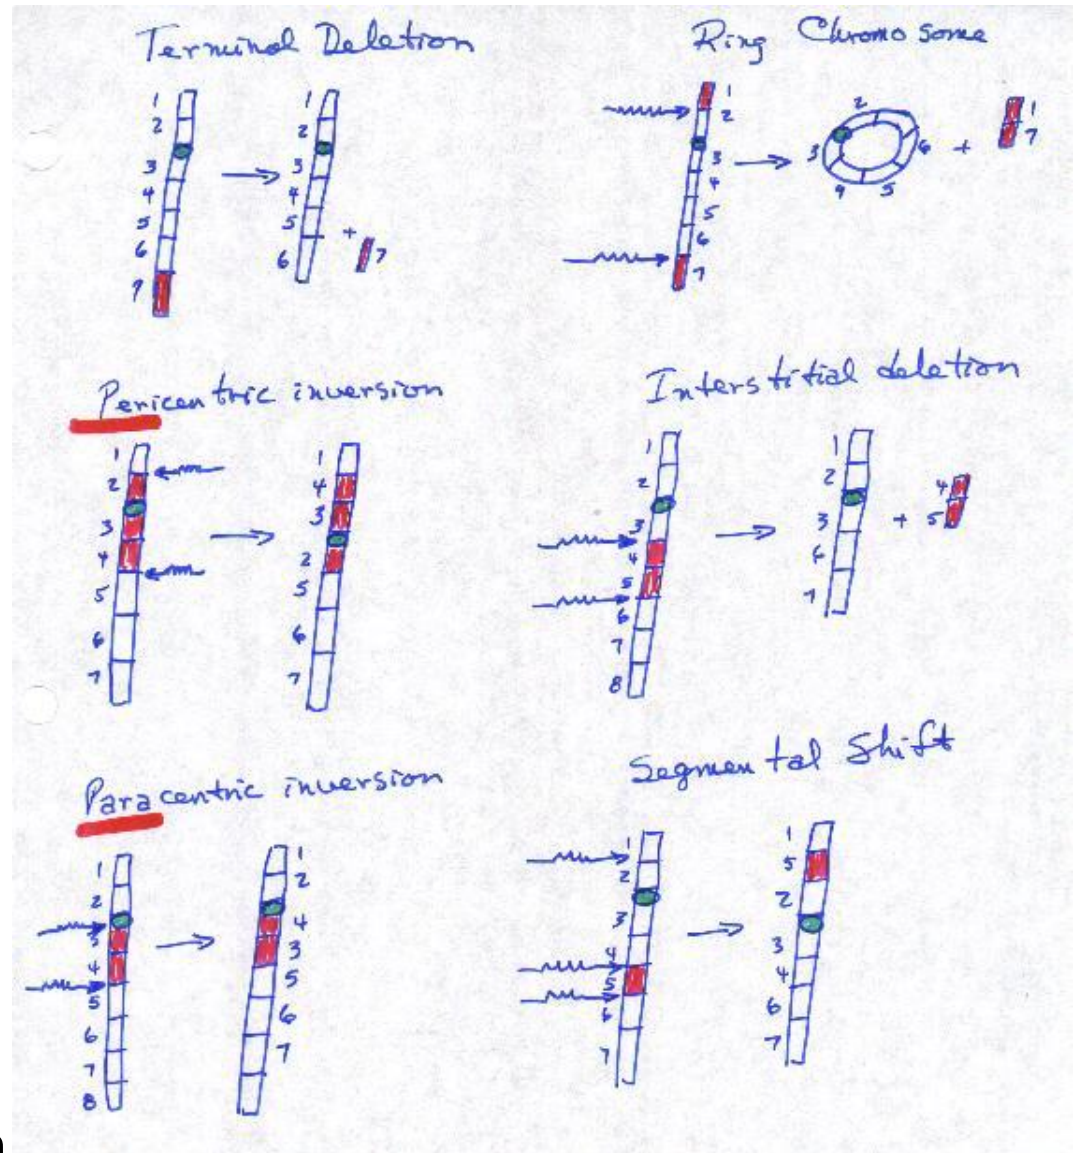 Terminal Deletion
1
2
3
4
5
6
7
1
2
3
4
5
6
+
7
Ring Chromosome
1
2
3
4
5
6
7
2
3
4
5
6
+
1
7
Pericentric inversion
1
2
3
4
5
6
7
1
4
3
2
5
6
7
Interstitial deletion
1
2
3
4
5
6
7
8
1
2
3
6
7
+
4
5
Paracentric inversion
1
2
3
4
5
6
7
8
1
2
4
3
5
6
7
Segmental Shift
1
2
3
4
5
6
7
1
5
2
3
4
6
7